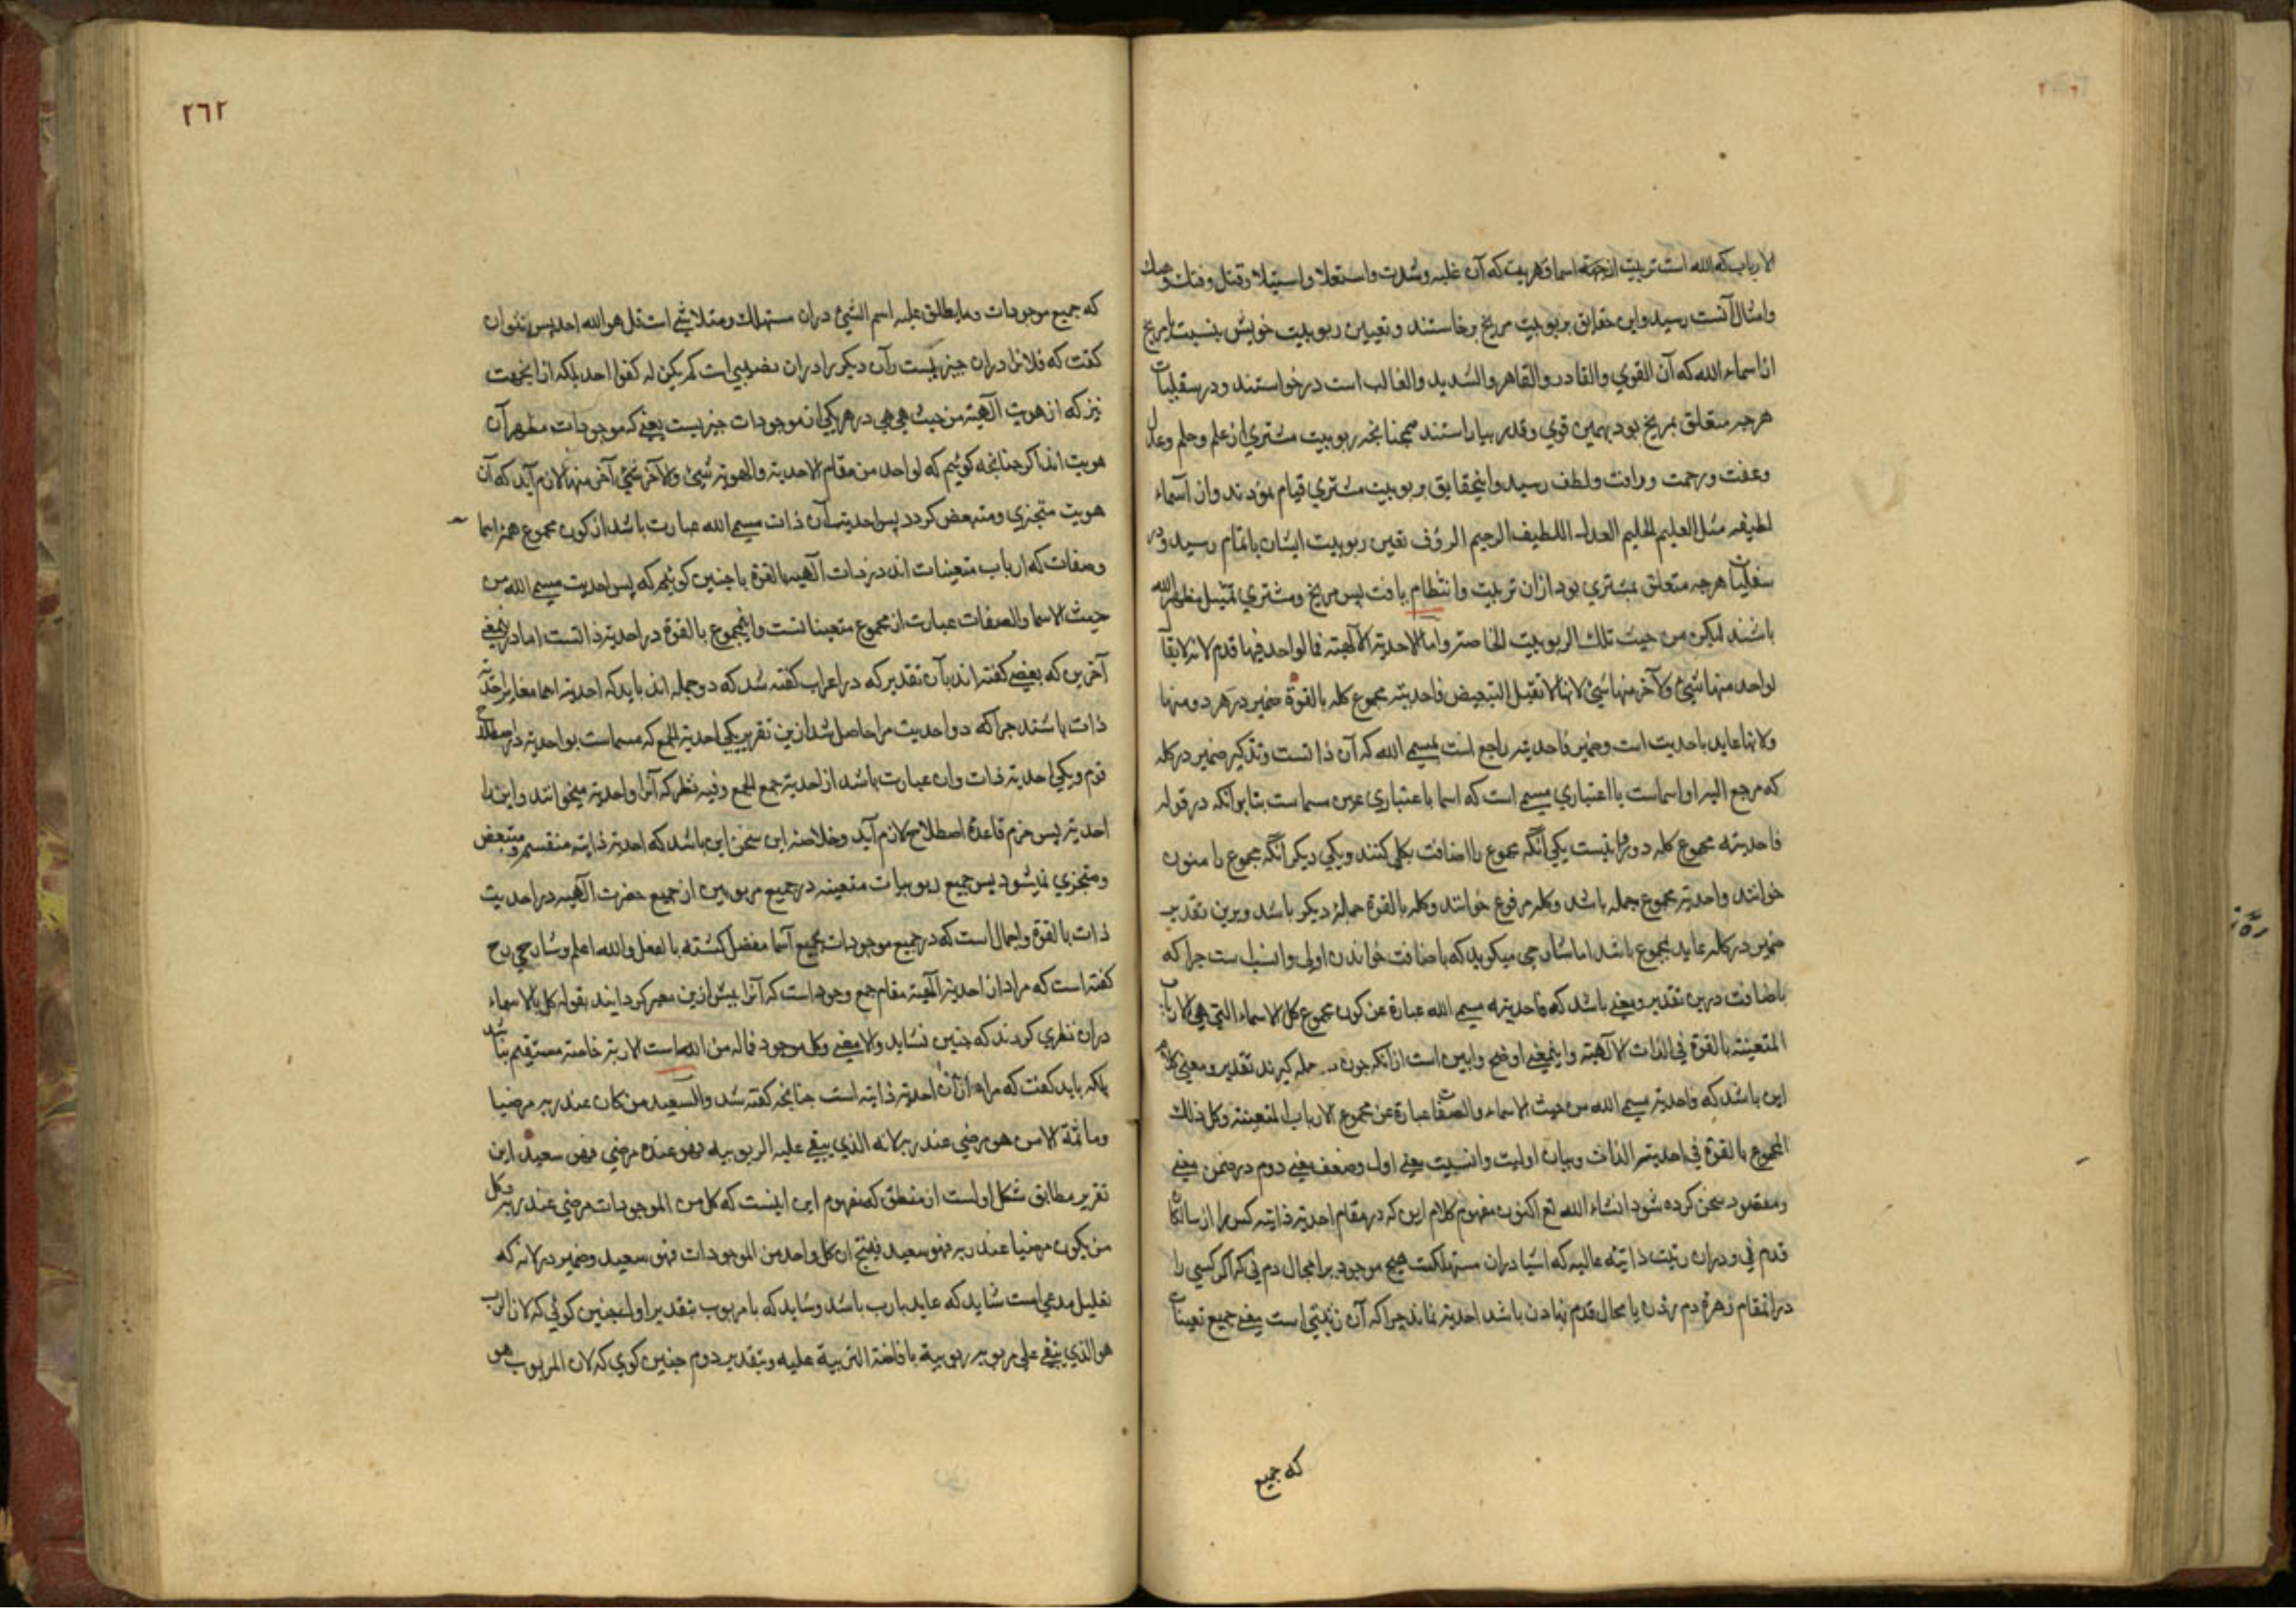 الارباب که الله است تربیت از جهة اسما قهریت که آن غلبه وشدت واستعلا واستیلا وقتل وفتك
وامثال آنست رسید واین حقایق بربوبیت مریخ برخاستند وتعیین ربوبیت خویش بنسبت با مریخ
از اسماء الله که آن القوي والقادر والقاهر والشدید والغالب است درخواستند ودر سفلیات
هرچه متعلق بمریخ بود بهمین قوي وقدر بیاراستند همچنانچه ربوبیت مشتري از علم وحلم وعدل
وعفت ورحمت ورافت ولطف رسید واینحقایق بربوبیت مشتري قیام نمودند واز اسماء
لطیفه مثل العلیم الحلیم العدل اللطیف الرحیم الرؤف تعین ربوبیت ایشان باتمام رسید ودر
سفلیات هرچه متعلق بمشتري بود ازان تربیت وانتظام یافت پس مریخ ومشتري مظهر الله
باشند لیکن من حیث تلك الربوبیت الخاصة واما الاحدیة الالهیة فما لواحد فیها قدم لانه لا یقال
لواحد منها شئ ولآخر منها شئ لانها لا تقبل التبعیض فاحدیته مجموع کله بالقوة ضمیر در هر دو منها
ولانها عاید باحدیت است وضمیر فاحدیته راجع است بمسمی الله که آن ذاتست وتذکیر ضمیر در کله
که مرجع الیه او اسماست با اعتباري مسمی است که اسما باعتباري عین مسماست بنا بر آنکه در قوله
فاحدیته مجموع کله دو قرائتست یکی آنکه مجموع را اضافت بکل کنند ویکی دیگر آنکه مجموع را منون
خوانند واحدیته مجموع جمله باشد وکله مرفوع خوانند وکله بالقوة جملۀ دیگر باشد وبرین تقدیر
ضمیر در کله عاید بمجموع باشد اما شارحی میگوید که باضافت خواندن اولی وانسب است چرا که
باضافت درین تقدیر ومعنی باشد که فاحدیته مسمی الله عبارة عن کون مجموع کل الاسماء التي هي الارباب
المتعینة بالقوة في الذات الآلهیة واینمعنی اوضح وابین است ازانکه چون جمله گیرند تقدیر ومعنی کلام
این باشد که فاحدیة مسمی الله من حیث الاسماء والصفات عبارة عن مجموع الارباب المتعینة وکل ذلك
المجموع بالقوة في احدیة الذات وبیان اولیت وانسبیت معنی اول وضعف معنی دوم در ضمن معنی
ومقصود سخن کرده شود انشاء الله تع اکنون مفهوم کلام این که در مقام احدیة ذاتیه کس را از سالکان
قدم نی ودران رتبت ذاتیه عالیه که اشیا دران مستهلکست هیچ موجود را مجال دم نی که اگر کسی را
درانمقام زهرۀ دم زدن یا مجال قدم نهادن باشد احدیة نماند چرا که آن رتبتی است یعنی جمیع تعینات
که جمیع
٢٦٢
که جمیع موجودات وما یطلق علیه اسم الشئ دران مستهلك ومتلاشی است قل هو الله احد پس نتوان
گفت که فلانرا دران چیزیست وآن دیگر را دران نصیبی است لم یکن له کفوا احد بلکه ازینجهت
نیز که از هویت آلهیة من حیث هي هي در هر یکی از موجودات چیزیست یعنی که موجودات مظهر آن
هویت اند اگر چنانچه گوئیم که لواحد من مقام الاحدیة والهویة شئ ولآخر شئ آخر منها لازم آید که آن
هویت متجزي ومتبعض گردد پس احدیت آن ذات مسمی الله عبارت باشد از کون مجموع همه اسما
وصفات که ارباب متعینات اند در ذات آلهیه بالقوة یا چنین گوئیم که پس احدیت مسمی الله من
حیث الاسما والصفات عبارت از مجموع متعیناتست واینمجموع بالقوة در احدیة ذاتست اما در معنی
آخرین که بعضی گفته اند بآن تقدیر که در اعراب گفته شد که دو جمله اند باید که احدیة اسما مغایر احدیة
ذات باشند چرا که دو احدیت مرا حاصل شد ازین تقریر یکی احدیة الجمع که مسماست بواحدیة در اصطلاح
قوم ویکی احدیة ذات وان عبارت باشد از احدیة جمع الجمع وفیه نظر که آنرا واحدیة میخوانند واین را
احدیة پس خرم قاعدۀ اصطلاح لازم آید وخلاصۀ این سخن این باشد که احدیة ذاتیه منقسم ومتبعض
ومتجزي نمیشود پس جمیع ربوبیات متعینه در جمیع مربوبین از جمیع حضرت آلهیه در احدیت
ذات بالقوة واجمال است که در جمیع موجودات بجمیع اسما مفصل گشته بالفعل والله اعلم وشارحی رح
گفته است که مراد از احدیة آلهیة مقام جمع وجود است که آنرا پیش ازین معبر گردانید بقوله کل بالاسماء
دران نظري کردند که چنین نشاید والا معنی وکل موجود فما له من الله الا ربه خاصة مستقیم نباشد
بلکه باید گفت که مراد ازان احدیة ذاتیه است چنانچه گفته شد والسعید من کان عند ربه مرضیا
وما ثمة الا من هو مرضي عند ربه لانه الذي یبقی علیه الربوبیه فهو عنده مرضي فهو سعید این
تقریر مطابق شکل اولست از منطق که مفهوم این اینست که کل من الموجودات مرضي عند ربه وکل
من یکون مرضیا عند ربه فهو سعید فینتج ان کل واحد من الموجودات فهو سعید وضمیر در لانه که
تعلیل مدعی است شاید که عاید بارب باشد وشاید که با مربوب بتقدیر اول چنین گوئی که لان الرب
هو الذي یبقی علی مربوبه ربوبیة بافاضة التربیة علیه وبتقدیر دوم چنین گوي که لان المربوب هو